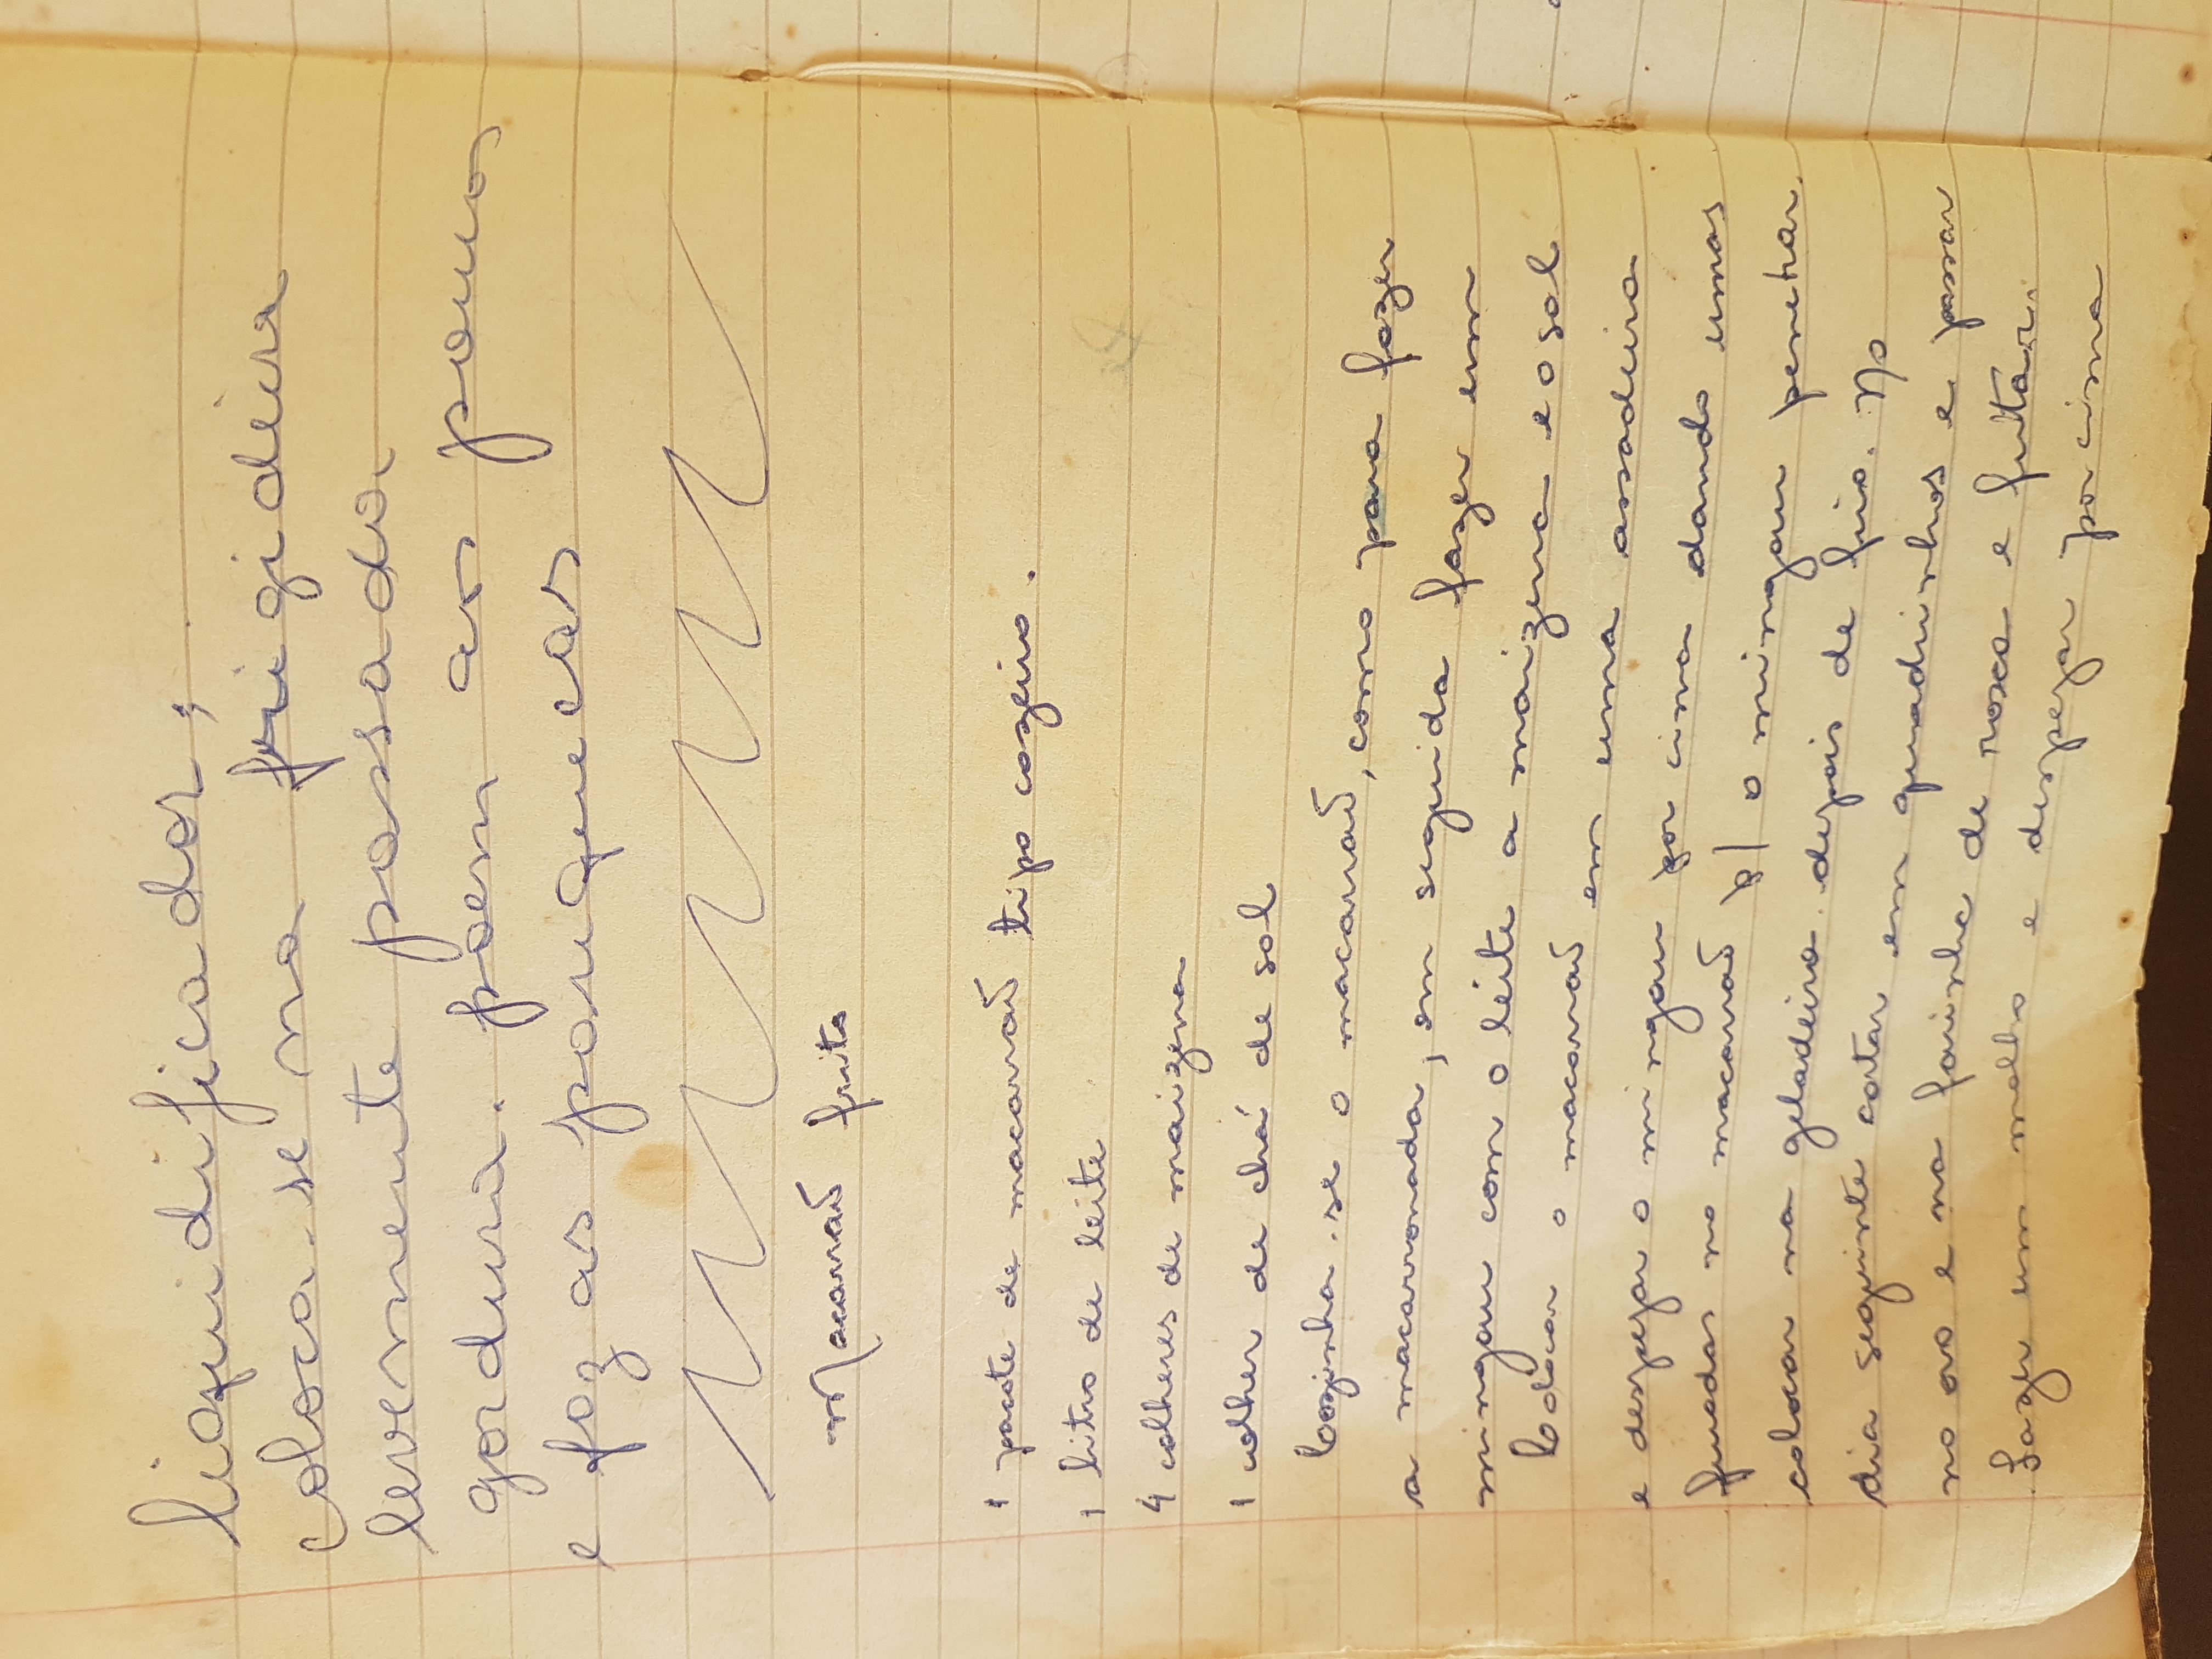 liquidificador;
coloca-se na frigideira
levemente passada
gordura. poem aos poucos
e faz as panquecas
Macarraõ frito
1 pacote de macarraõ tipo cozeiro.
1 litro de leite
4 colheres de maizena
1 colher de chá de sal
Cozinha-se o macarraõ, como para fazer
a macarronada, em seguida fazer um
mingau com o leite a maizena e o sal
Colocar o macarraõ em uma assadeira
e despejar o mingau por cima dando umas
furadas no macarraõ p/ o mingau penetrar.
colocar na geladeira depois de frio. No
dia seguinte cortar em quadrinhos e passar
no ovo e na farinha de rosca e fritar.
Fazer um molho e despejar por cima